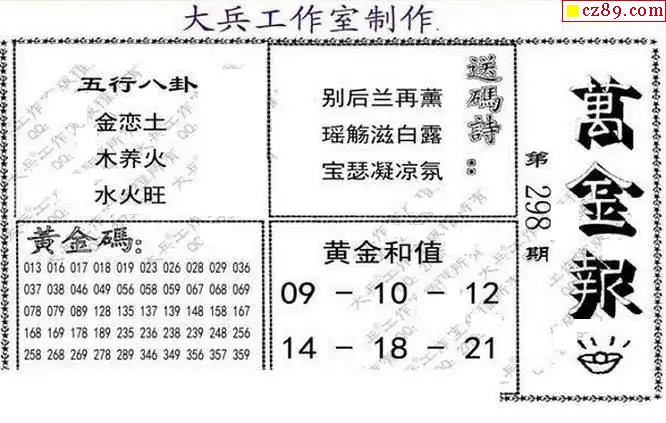 大兵工作室制作.
cz89.com
五行八卦
金恋土
木养火
水火旺
送碼詩：
别后兰再薰
瑶觞滋白露
宝瑟凝凉氛
萬金報
第298期
黃金碼：
013 016 017 018 019 023 026 028 029 036
037 038 046 049 056 058 059 067 068 069
078 079 089 128 135 137 139 148 158 167
168 169 178 189 235 236 246 238 239 249
258 268 269 278 289 346 349 356 357 359
黄金和值
09 - 10 - 12
14 - 18 - 21